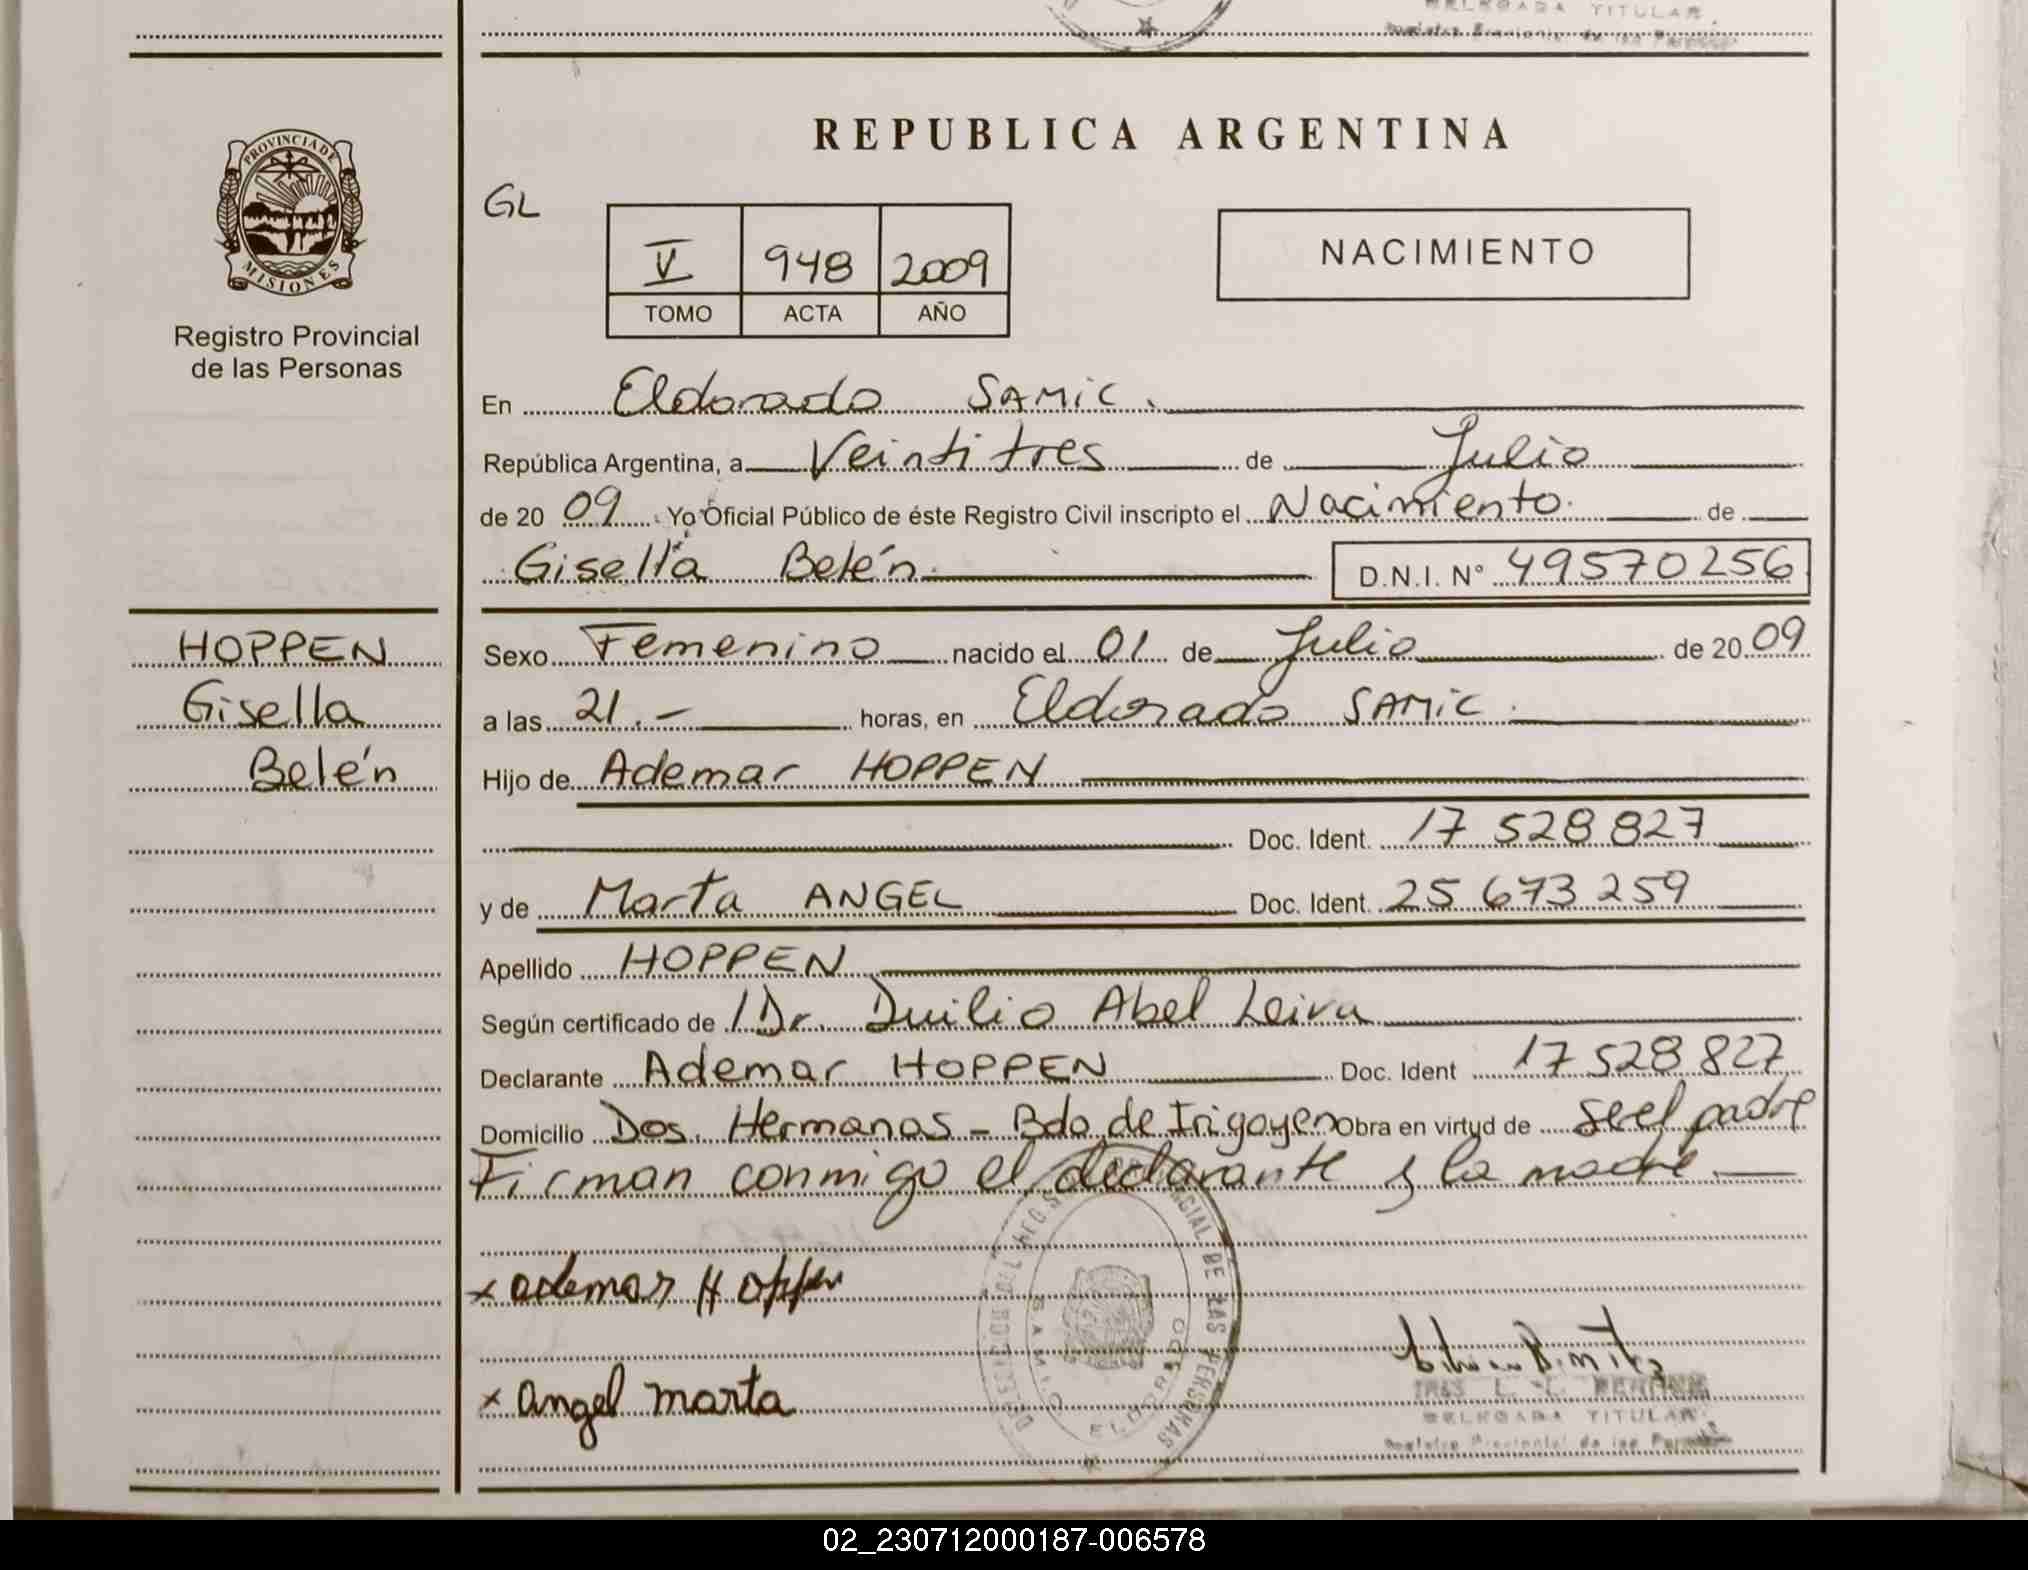 DELEGADA TITULAR
REPUBLICA ARGENTINA
PROVINCIA DE
MISIONES
Registro Provincial
de las Personas
GL
V 948 2009
TOMO ACTA AÑO
NACIMIENTO
En Eldorado SAMIC.
República Argentina, a Veintitres de Julio
de 20 09. Yo Oficial Público de éste Registro Civil inscripto el Nacimiento de
Gisella Belén D.N.I. N° 49570256
HOPPEN
Gisella
Belén
Sexo Femenino nacido el 01 de Julio de 20 09
a las 21.- horas, en Eldorado SAMIC.
Hijo de Ademar HOPPEN
Doc. Ident. 17 528 827
y de Marta ANGEL Doc. Ident. 25 673 259
Apellido HOPPEN
Según certificado de Dr. Duilio Abel Leiva
Declarante Ademar HOPPEN Doc. Ident 17 528 827
Domicilio Dos Hermanas - Bdo de Irigoyen Obra en virtud de ser el padre
Firman conmigo el declarante y la madre
x ademar Hoppen
x angel marta
SAMIC ELDORADO
DELEGADA TITULAR
Registro Provincial de las Personas
02_230712000187-006578